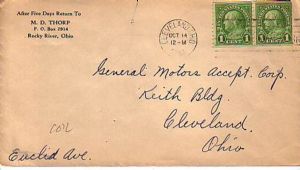 After Five Days Return To
M. D. THORP
P. O. Box 7914
Rocky River, Ohio
CLEVELAND
OCT 14
12-M
1 CENT 1
1 CENT 1
General Motors Accept. Corp.
Keith Bldg.
Cleveland,
Ohio
COIL
Euclid Ave.